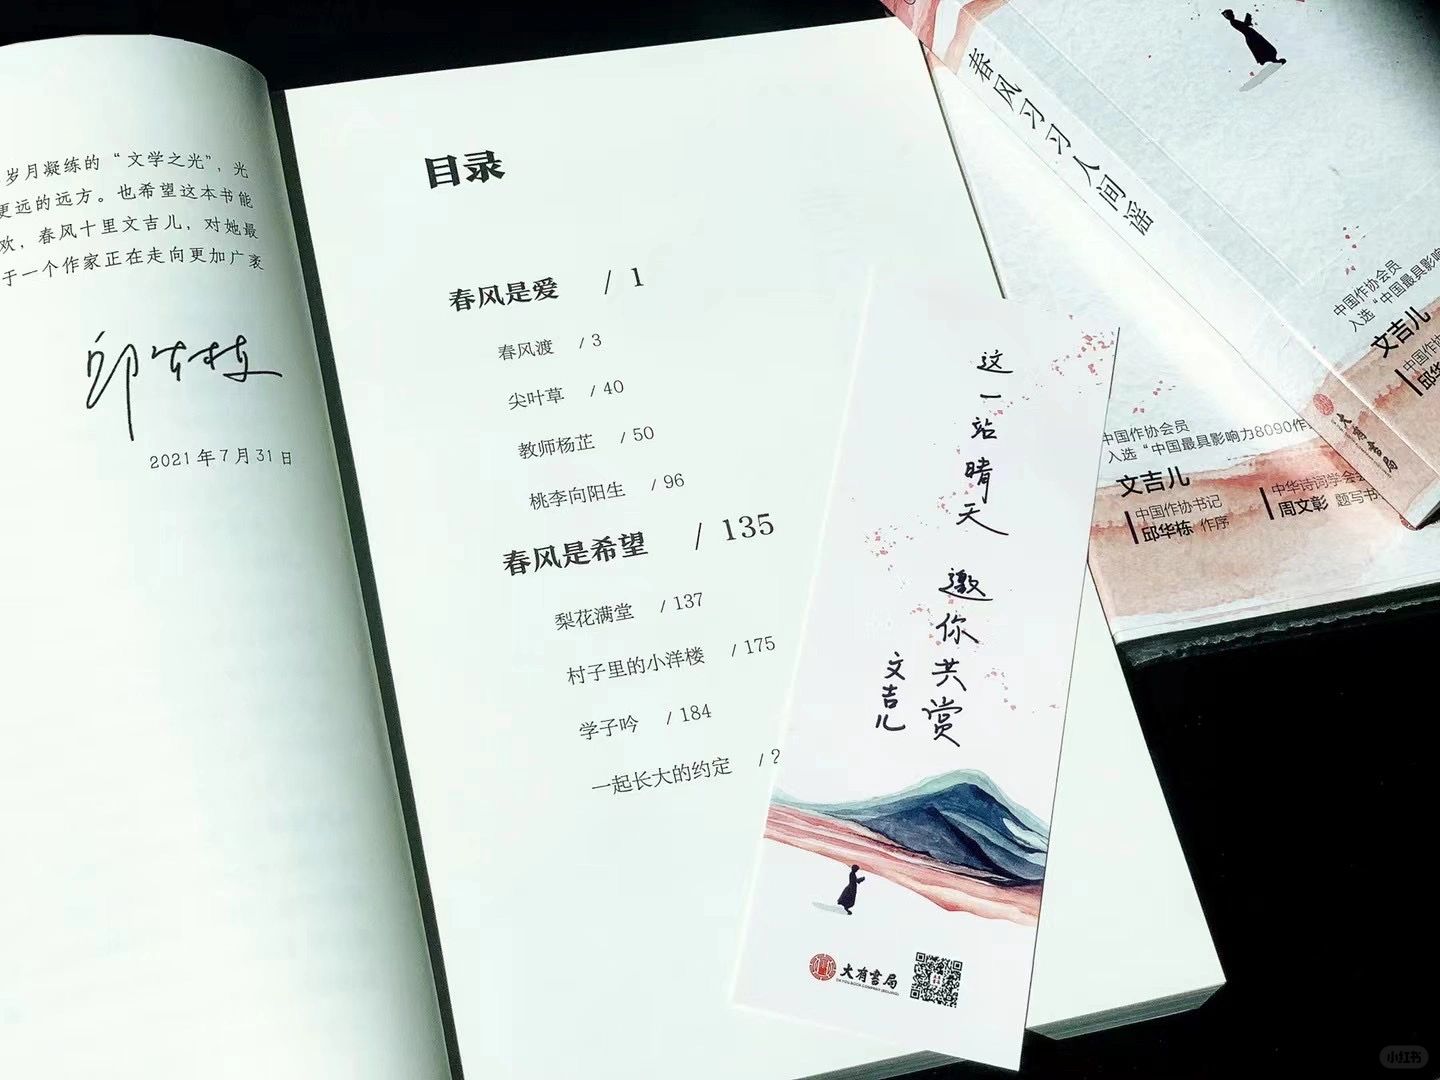 岁月凝练的“文学之光”，光
更远的远方。也希望这本书能
欢，春风十里文吉儿，对她最
于一个作家正在走向更加广袤
邱华栋
2021年7月31日
目录
春风是爱 / 1
春风渡 / 3
尖叶草 / 40
教师杨芷 / 50
桃李向阳生 / 96
春风是希望 / 135
梨花满堂 / 137
村子里的小洋楼 / 175
学子吟 / 184
一起长大的约定 / 2
这一站晴天
邀你共赏
文吉儿
大有書局
春风习习人间谣
大有書局
中国作协会员
入选“中国最具影响
文吉儿
中国作协
邱华
中国作协会员
入选“中国最具影响力8090作
文吉儿
中国作协书记
邱华栋 作序
中华诗词学会会
周文彰 题写书
小红书